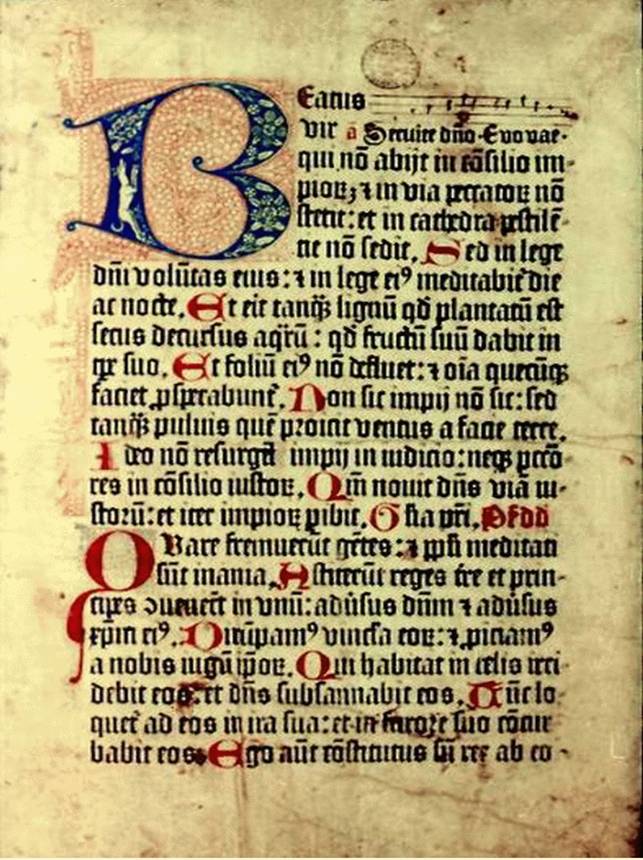 Beatus
vir a Seruite dño. Evovae.
qui nõ abijt in cõsilio im-
pioꝝ ⁊ in via peccatoꝝ nõ
stetit: et in cathedra pestilẽ-
tie nõ sedit. Sed in lege
dñi volũtas eius: ⁊ in lege eiꝰ meditabit᷑ die
ac nocte. Et erit tanqꝫ lignũ qđ plantatũ est
secus decursus aqͬꝝ: qđ fructũ suũ dabit in
tꝑe suo. Et foliũ eiꝰ nõ defluet: ⁊ oĩa quecũqꝫ
faciet ꝓsperabunt᷑. Non sic impij nõ sic: sed
tanqꝫ puluis quẽ proicit ventus a facie terre.
Ideo nõ resurgũt impij in iudicio: neqꝫ pctõ-
res in cõsilio iustoꝝ. Qm̃ nouit dñs viã iu-
storũ: et iter impioꝝ ꝑibit. Gl̃ia pr̃i. Ps dd
Quare fremuerũt gẽtes: ⁊ ppl̃i meditati
sũt inania. Astiterũt reges tr̃e et prin-
cipes ꝯuenerũt in vnũ: aduͥsus dñm ⁊ aduͥsus
xpm̃ eiꝰ. Dirũpamꝰ vincl̃a eoꝝ: ⁊ ꝓiciamꝰ
a nobis iugũ ip̃oꝝ. Qui habitat in celis irri-
debit eos: et dñs subsannabit eos. Tũc lo-
quet᷑ ad eos in ira sua: et in furore suo cõtur-
babit eos. Ego aũt cõstitutus sũ rex ab eo-